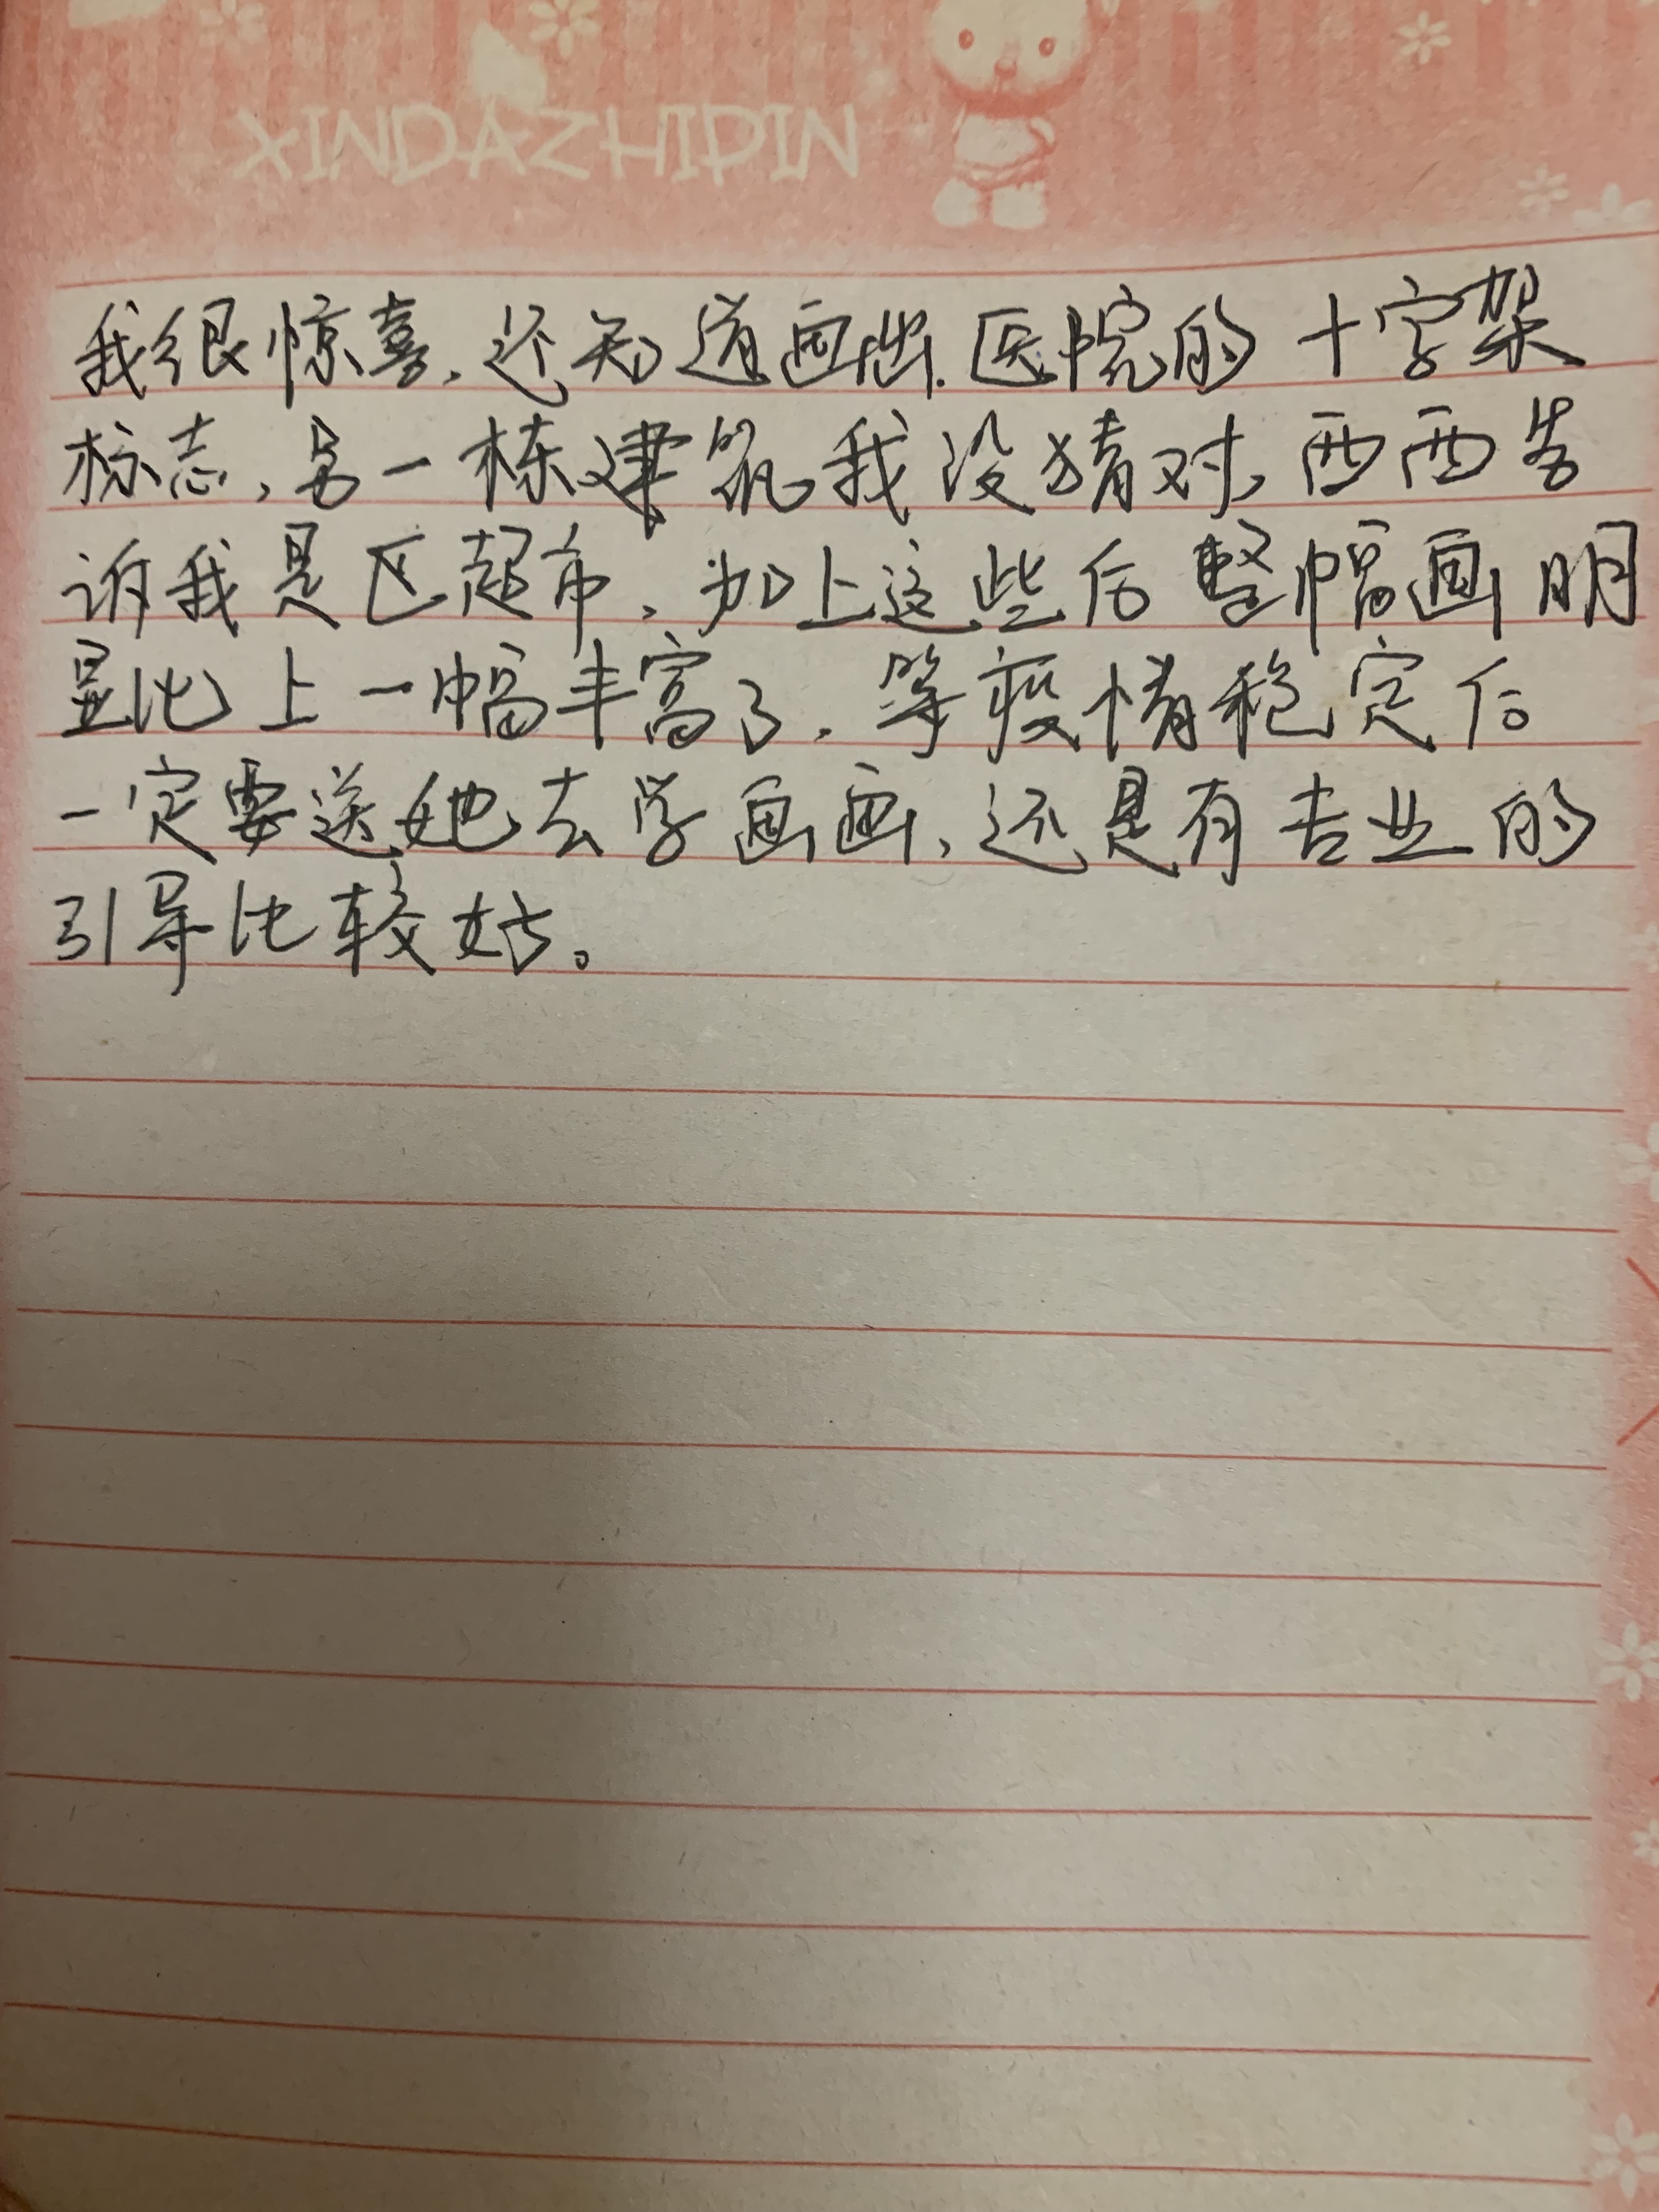 XINDAZHIPIN
我很惊喜,还知道画出医院的十字架
标志,另一栋建筑我没猜对,西西告
诉我是区超市,加上这些后整幅画明
显比上一幅丰富了,等疫情稳定后
一定要送她去学画画,还是有专业的
引导比较好。